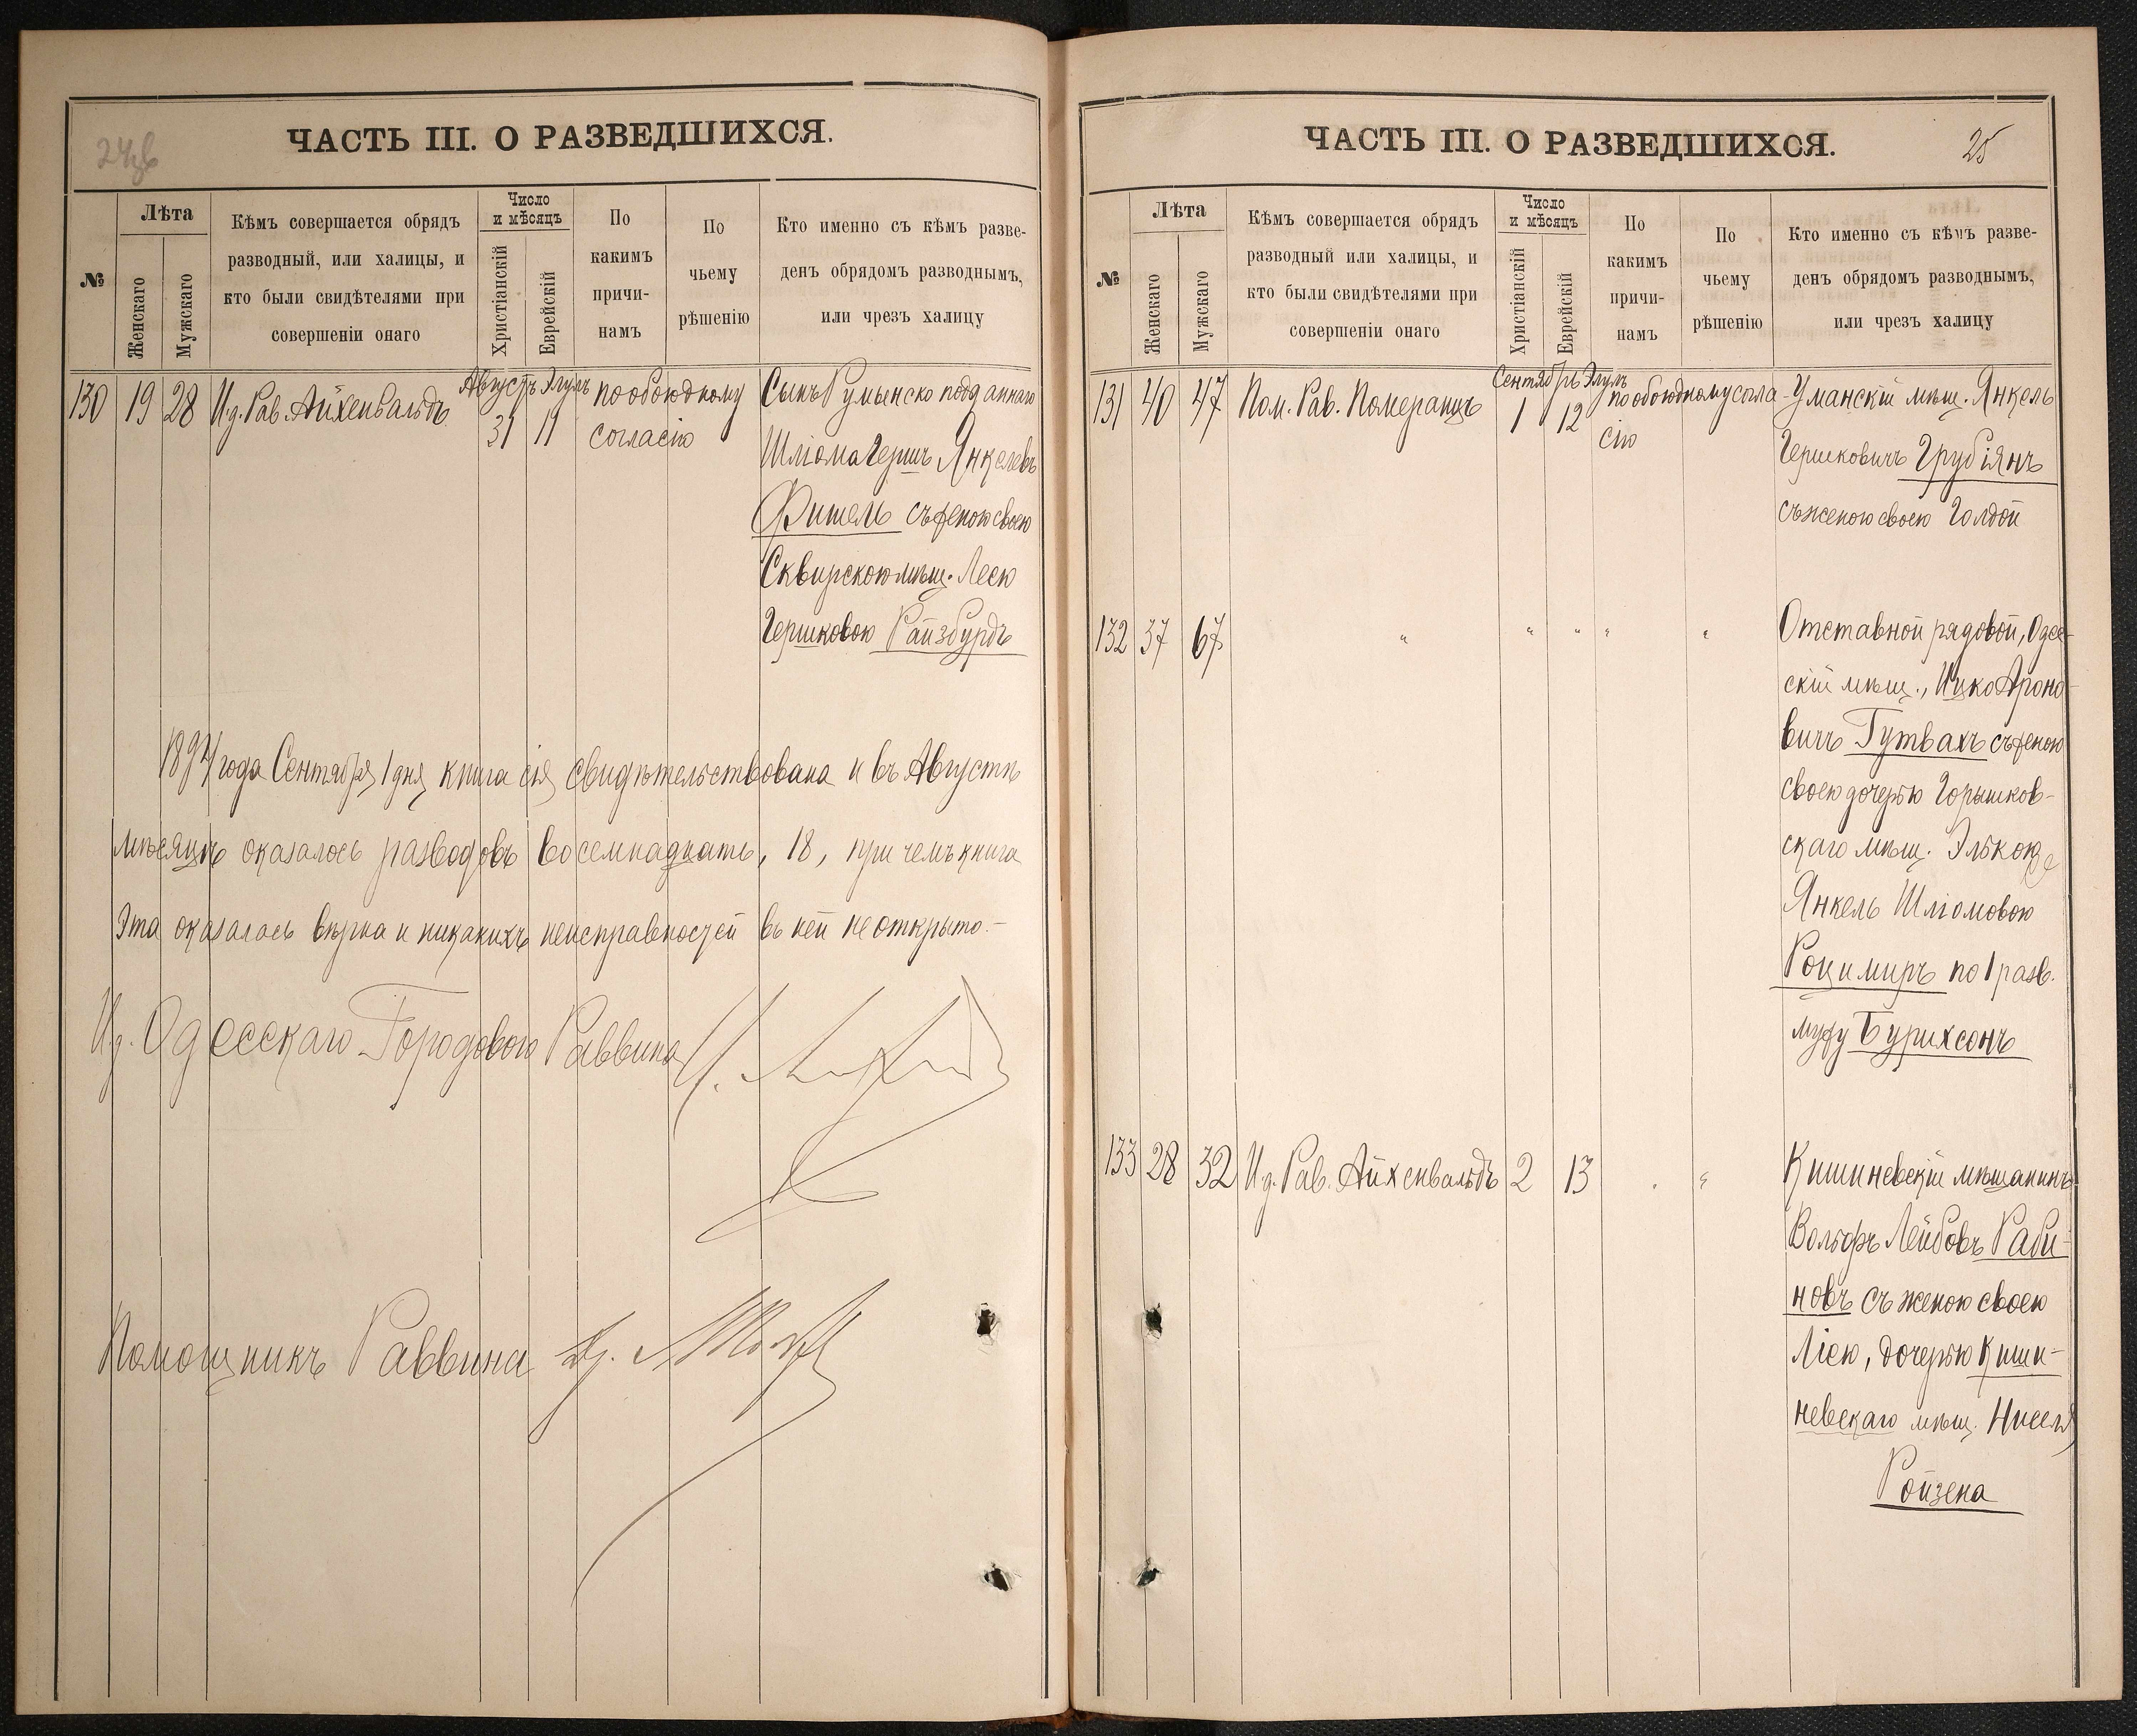 ЧАСТЬ III. О РАЗВЕДШИХСЯ.
№
Лѣта
Женскаго
Мужскаго
Кѣмъ совершается обрядъ
разводный, или халицы, и
кто были свидѣтелями при
совершеніи онаго
Число
и мѣсяцъ
Христіанскій
Еврейскій
По
какимъ
причи-
намъ
По
чьему
рѣшенію
Кто именно съ кѣмъ разве-
денъ обрядомъ разводнымъ,
или чрезъ халицу
130 19 28 И.д. Рав. Айхенвальдъ
Августъ Элулъ
31 11
по обоюдному
согласію
Сынъ Румынско подданнаго
Шліома Гершъ Янкелевъ
Фишель съ женою своею
Сквирскою мѣщ. Лесю
Гершковою Райзбурдъ
1894 года Сентября 1 дня книга сія свидѣтельствована и въ Августѣ
мѣсяцѣ оказалось разводовъ восемнадцать, 18, при чемъ книга
эта оказалась вѣрна и никакихъ неисправностей въ ней не открыто.-
И.д. Одесскаго Городового Раввина
Помощникъ Раввина Др.
ЧАСТЬ III. О РАЗВЕДШИХСЯ.
25
№
Лѣта
Женскаго
Мужскаго
Кѣмъ совершается обрядъ
разводный или халицы, и
кто были свидѣтелями при
совершеніи онаго
Число
и мѣсяцъ
Христіанскій
Еврейскій
По
какимъ
причи-
намъ
По
чьему
рѣшенію
Кто именно съ кѣмъ разве-
денъ обрядомъ разводнымъ,
или чрезъ халицу
131 40 47 Пом. Рав. Померанцъ
Сентябрь Элулъ
1 12
по обоюдному согла-
сію
Уманскій мѣщ. Янкель
Гершковичъ Грубіянъ
съ женою своею Голдой
132 37 67 " " " " "
Отставной рядовой, Одес-
скій мѣщ., Ицко Ароно-
вичъ Гутвахъ съ женою
своею дочерью Горышков-
скаго мѣщ. Элькою
Янкель Шліомовою
Роцимиръ по 1 разв.
мужу Бурихсонъ
133 28 32 И.д. Рав. Айхенвальдъ 2 13 " "
Кишиневскій мѣщанинъ
Вольфъ Лейбовъ Раби-
новъ съ женою своею
Лією, дочерью Киши-
невскаго мѣщ. Ниселя
Ройзена